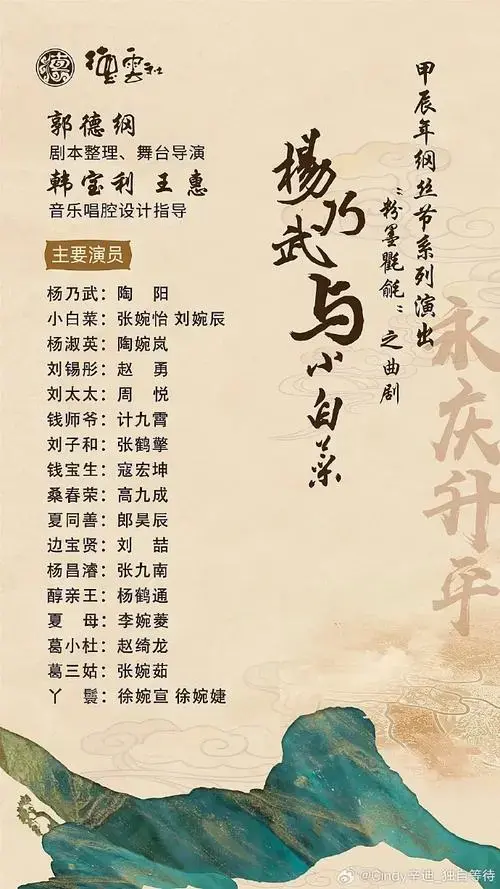 德雲社
郭德纲
剧本整理、舞台导演
韩宝利 王惠
音乐唱腔设计指导
主要演员
杨乃武：陶 阳
小白菜：张婉怡 刘婉辰
杨淑英：陶婉岚
刘锡彤：赵 勇
刘太太：周 悦
钱师爷：计九霄
刘子和：张鹤擎
钱宝生：寇宏坤
桑春荣：高九成
夏同善：郎昊辰
边宝贤：刘 喆
杨昌濬：张九南
醇亲王：杨鹤通
夏 母：李婉菱
葛小杜：赵绮龙
葛三姑：张婉茹
丫 鬟：徐婉宣 徐婉婕
甲辰年纲丝节系列演出
“粉墨氍毹”之曲剧
楊乃武与小白菜
永庆升平
@Cindy辛迪_独自等待